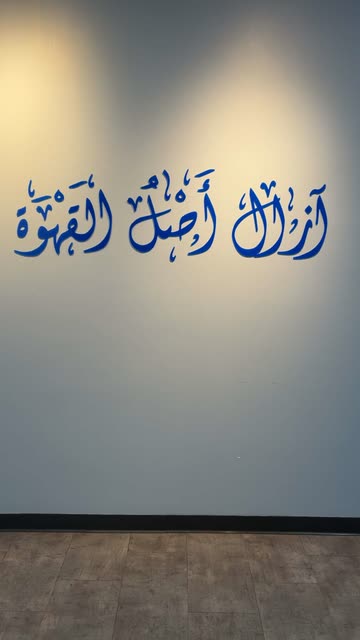 آزال أَصْلُ القَهْوَة